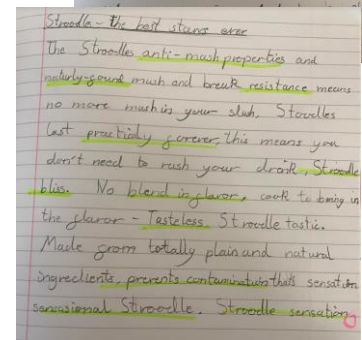 Stroodle - the best straws ever
The Stroodles anti-mash properties and
naturly-gound mush and break resistance means
no more mush in your slush. Stoodles
last practicly gorever, this means you
don't need to rush your drink, Stroodle
bliss. No blend in glavor, cook to bring in
the glavor - Tasteless. Stroodle tastic.
Made grom totally plain and natural
ingredients, prevents contamination thats
Stroodle. Stroodle sensation